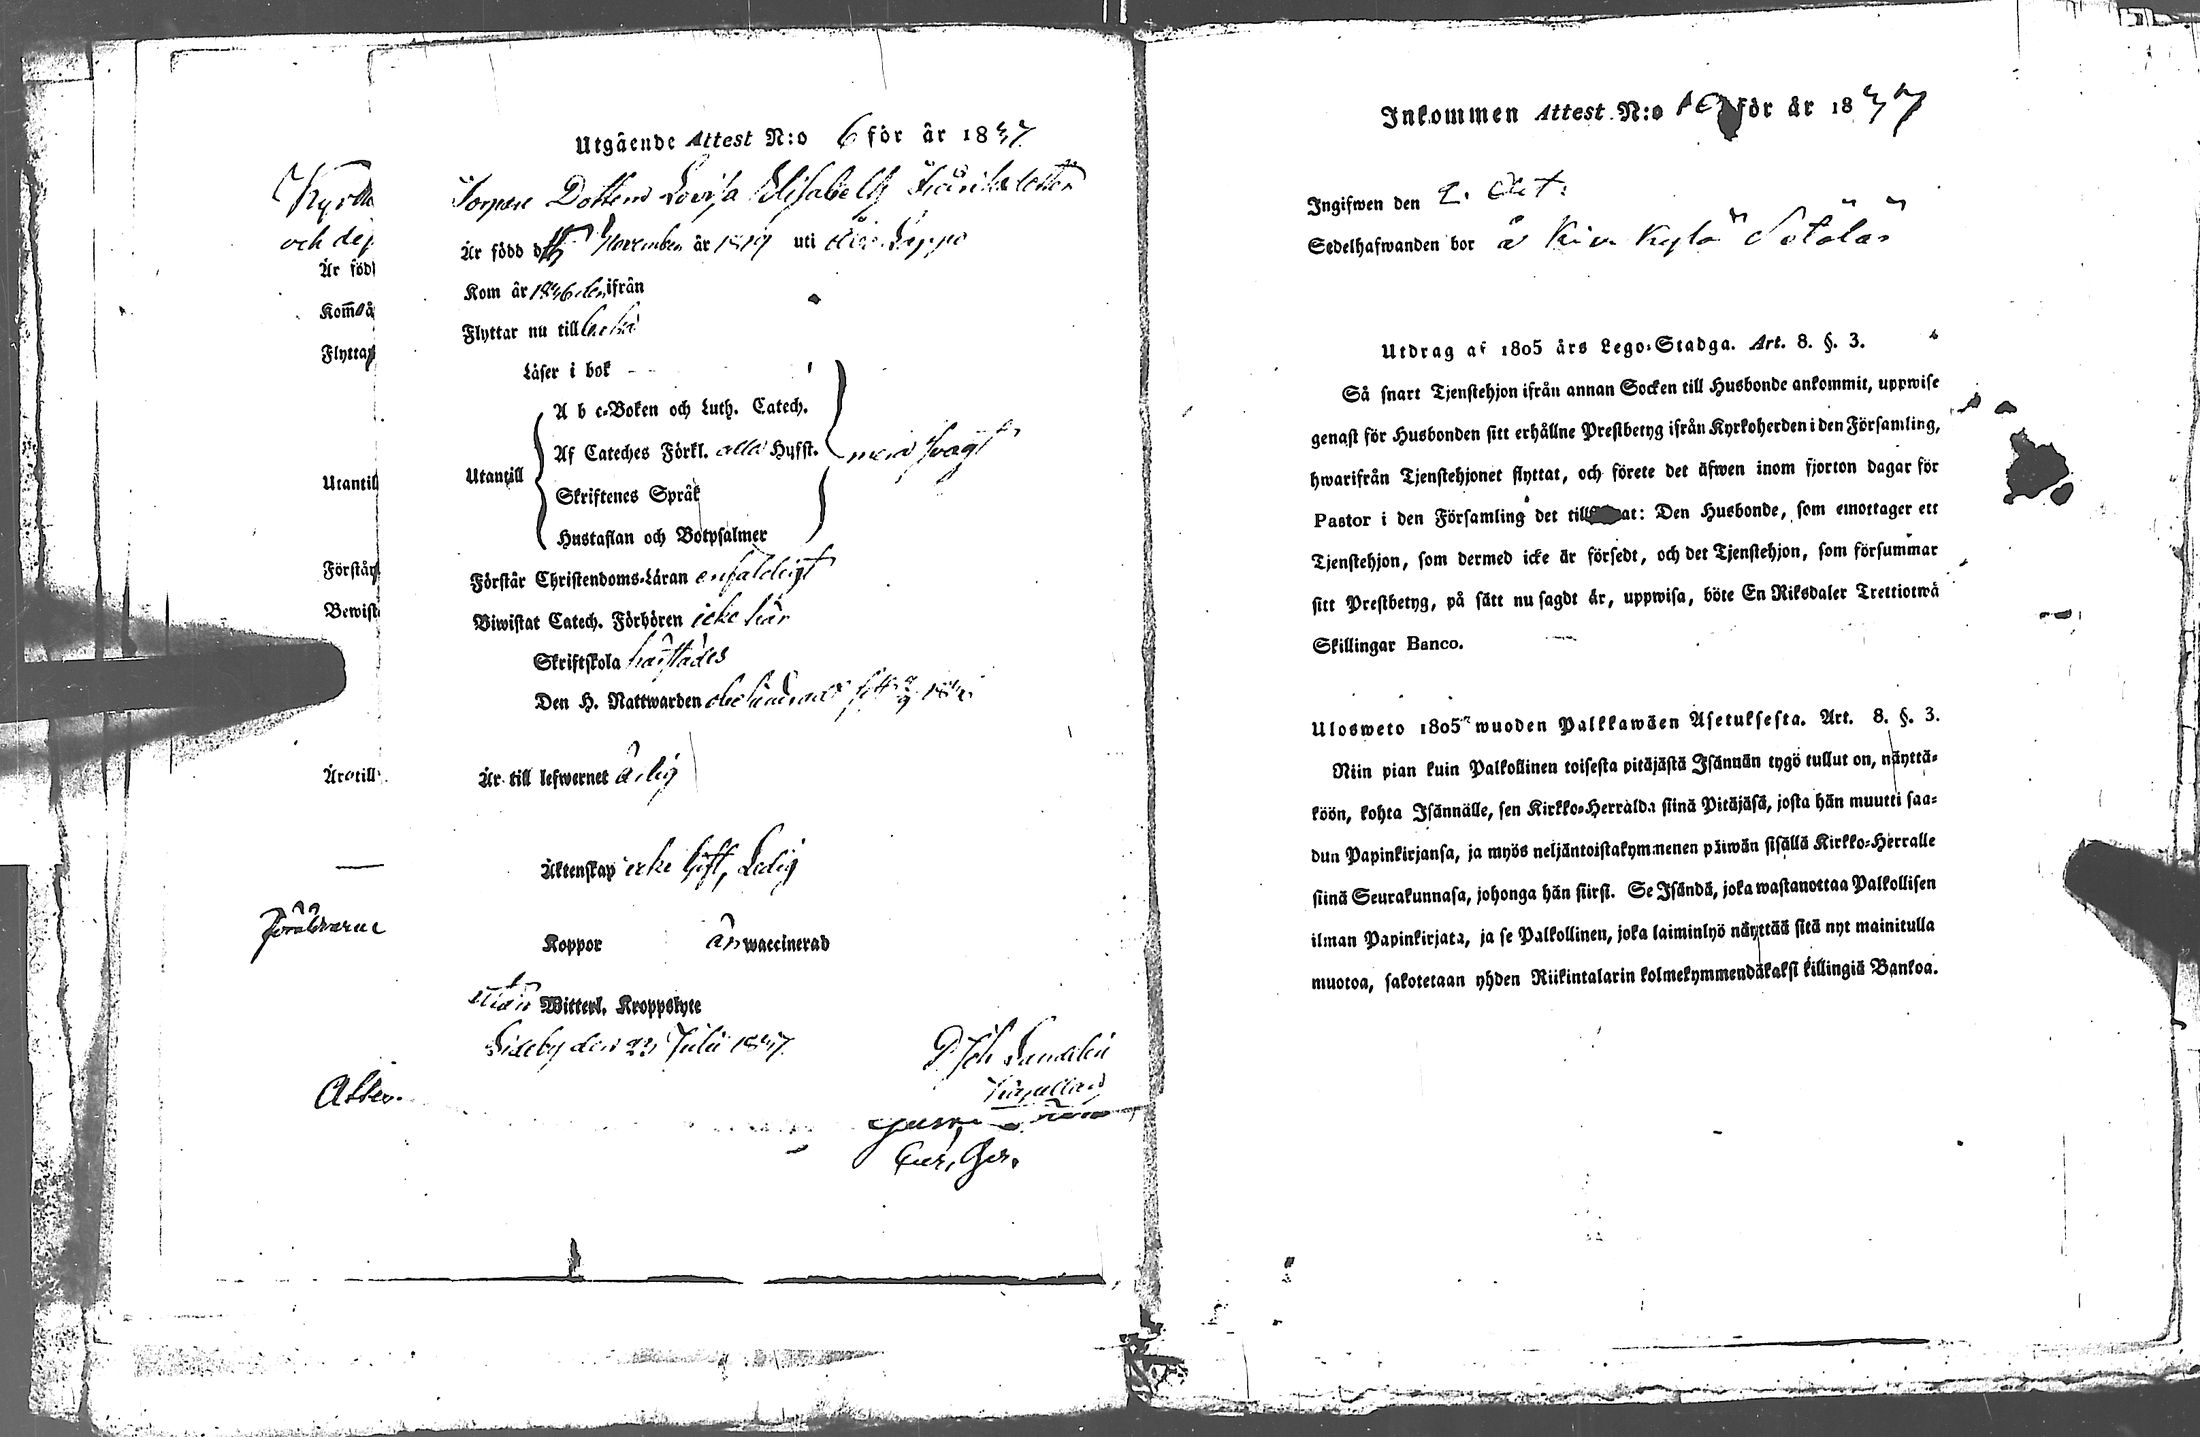 Utgående Attest N:o 6 för år 1837
Dottern Lovisa Elisabeth
Är född d November år 1819 uti Lappo
Kom år 1836 ifrån
Flyttar nu till
Läser i bok
A b c-Boken och Luth. Catech.
Af Cateches Förkl. alla Hufst.
Utantill
Skriftenes Språk
Hustaflan och Botpsalmer
med svagt
Förstår Christendoms-Läran enfaldigt
Biwistat Catech. Förhören icke här
Skriftskola härstädes
Den H. Nattwarden obehindrad
Är till lefwernet ärlig
Äktenskap icke gift, Ledig
Koppor är waccinerad
utan Witterl. Kroppslyte
Sideby den 23 Julii 1837
Kapellan
Kyrko
och deß
Är född
Kom å
Flyttar
Utantill
Förstår
Bewist
Är till
Föräldrarne
Inkommen Attest N:o för år 1837
Ingifwen den 2. Oct:
Sedelhafwanden bor å Kylä
Utdrag af 1805 års Lego-Stadga. Art. 8. §. 3.
Så snart Tjenstehjon ifrån annan Socken till Husbonde ankommit, uppwise
genast för Husbonden sitt erhållne Prestbetyg ifrån Kyrkoherden i den Församling,
hwarifrån Tjenstehjonet flyttat, och förete det äfwen inom fjorton dagar för
Pastor i den Församling det till at: Den Husbonde, som emottager ett
Tjenstehjon, som dermed icke är försedt, och det Tjenstehjon, som försummar
sitt Prestbetyg, på sätt nu sagdt är, uppwisa, böte En Riksdaler Trettiotwå
Skillingar Banco.
Ulosweto 1805 wuoden Palkkawäen Asetuksesta. Art. 8. §. 3.
Niin pian kuin Palkollinen toisesta pitäjästä Isännän tygö tullut on, näyttä-
köön, kohta Isännälle, sen Kirkko-Herralda siinä Pitäjäsä, josta hän muutti saa-
dun Papinkirjansa, ja myös neljäntoistakymmenen päiwän sisällä Kirkko-Herralle
siinä Seurakunnasa, johonga hän siirsi. Se Isändä, joka wastanottaa Palkollisen
ilman Papinkirjata, ja se Palkollinen, joka laiminlyö näyttää sitä nyt mainitulla
muotoa, sakotetaan yhden Riikintalarin kolmekymmendäkaksi killingiä Bankoa.